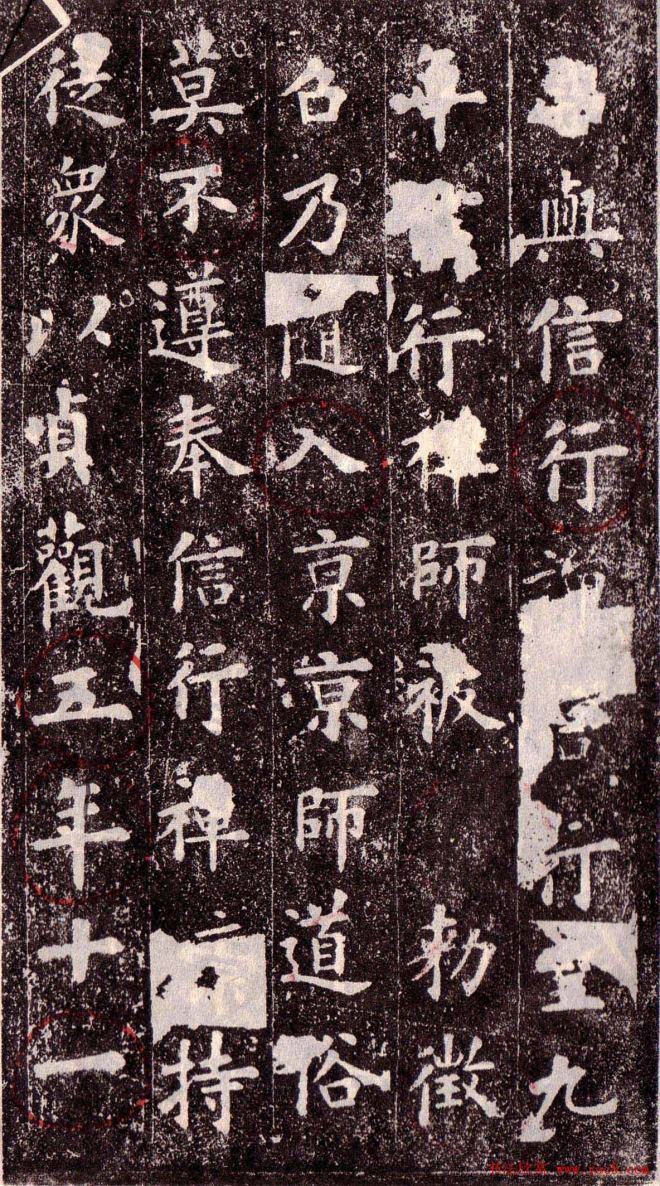 與信行行皇九
年行禪師被勅徵
召乃隨入京京師道俗
莫不遵奉信行禪持
徒衆以貞觀五年十一